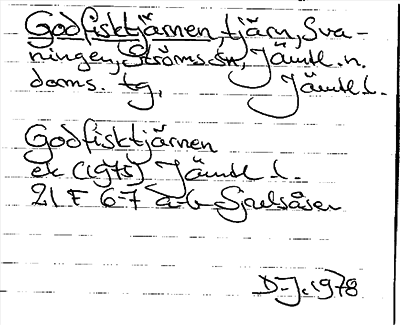 Godfisktjärnen, tjärn, Sva-
ningen, Ströms sn, Jämtl. n.
doms. tg, Jämtl. l.
Godfisktjärnen
ek (1975) Jämtl l.
21 F 6-7 a-b Sjulsåsen
D-J. 1978